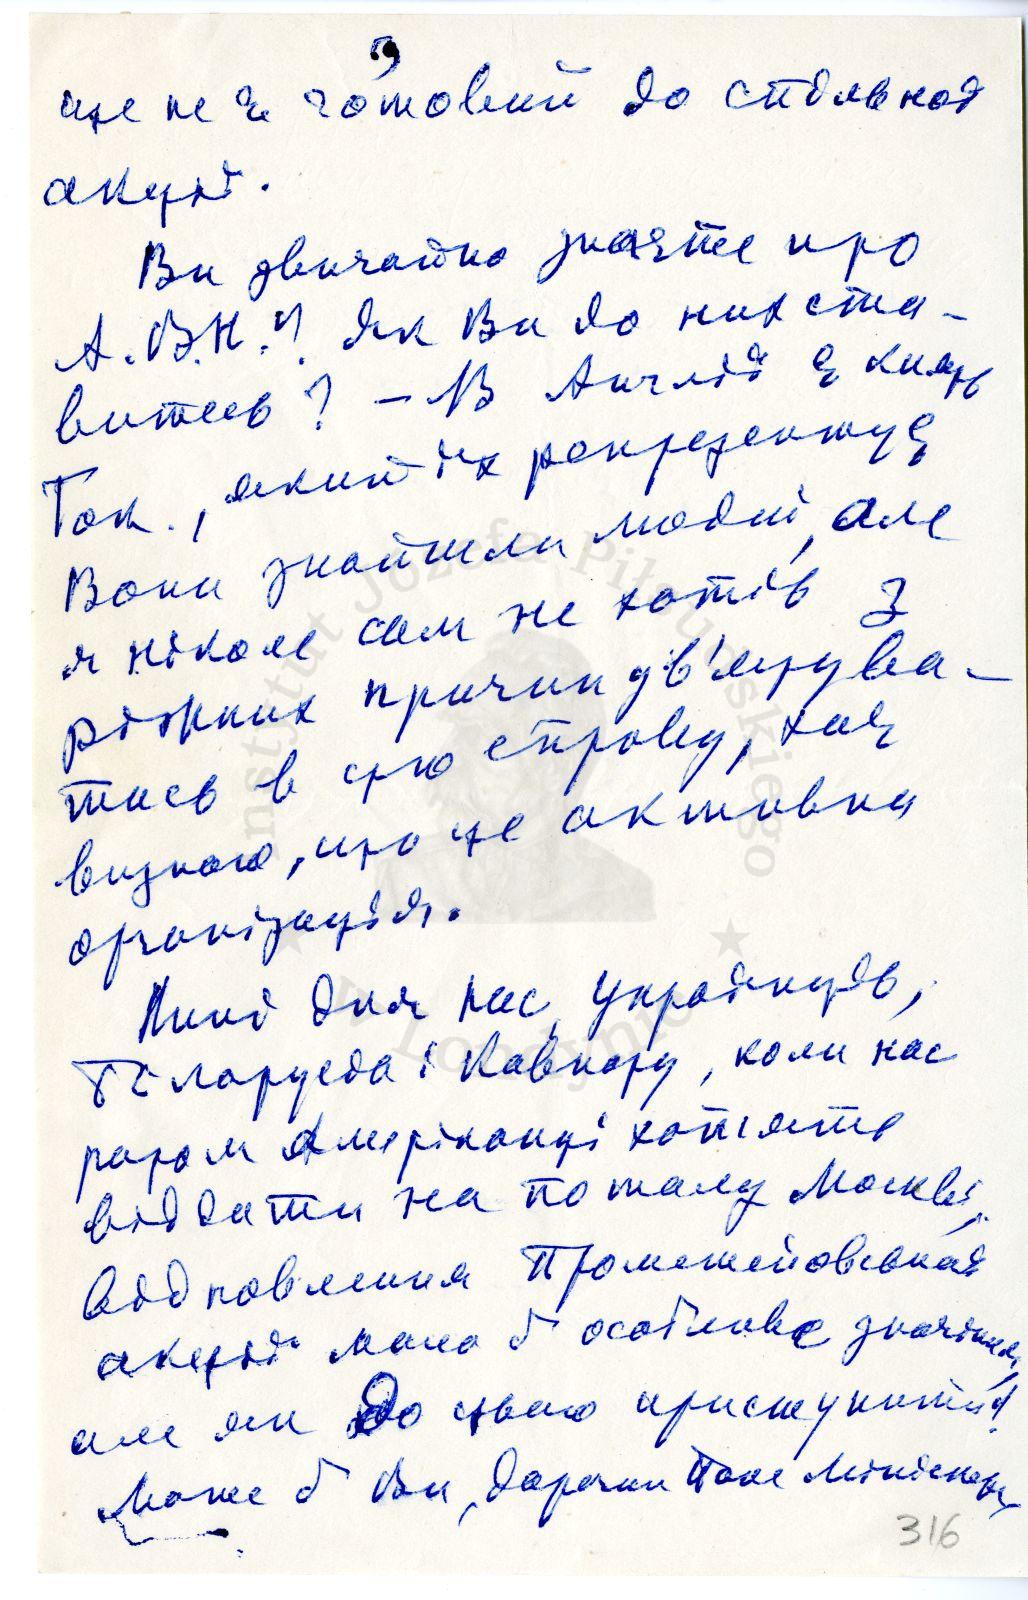 ще не є готовий до спільної
акції.
Ви звичайно знаєте про
А.Б.Н.? Як Ви до них ста-
витесь? – В Англії є князь
Ток., який їх репрезентує
Вони знайшли людей, але
я ніколи сам не хотів з
ріжних причин ув'язува-
тись в цю справу, хоч
визнаю, що це активна
організація.
Нині для нас, українців,
Білорусів і Кавказу, коли нас
разом Американці хотять
віддати на поталу Москві,
відновлення Прометеївської
акції мало б особливе значіння,
але як до цього приступити?
Може б Ви, дорогий Пане Міністре,
316
Instytut Józefa Piłsudskiego
w Londynie